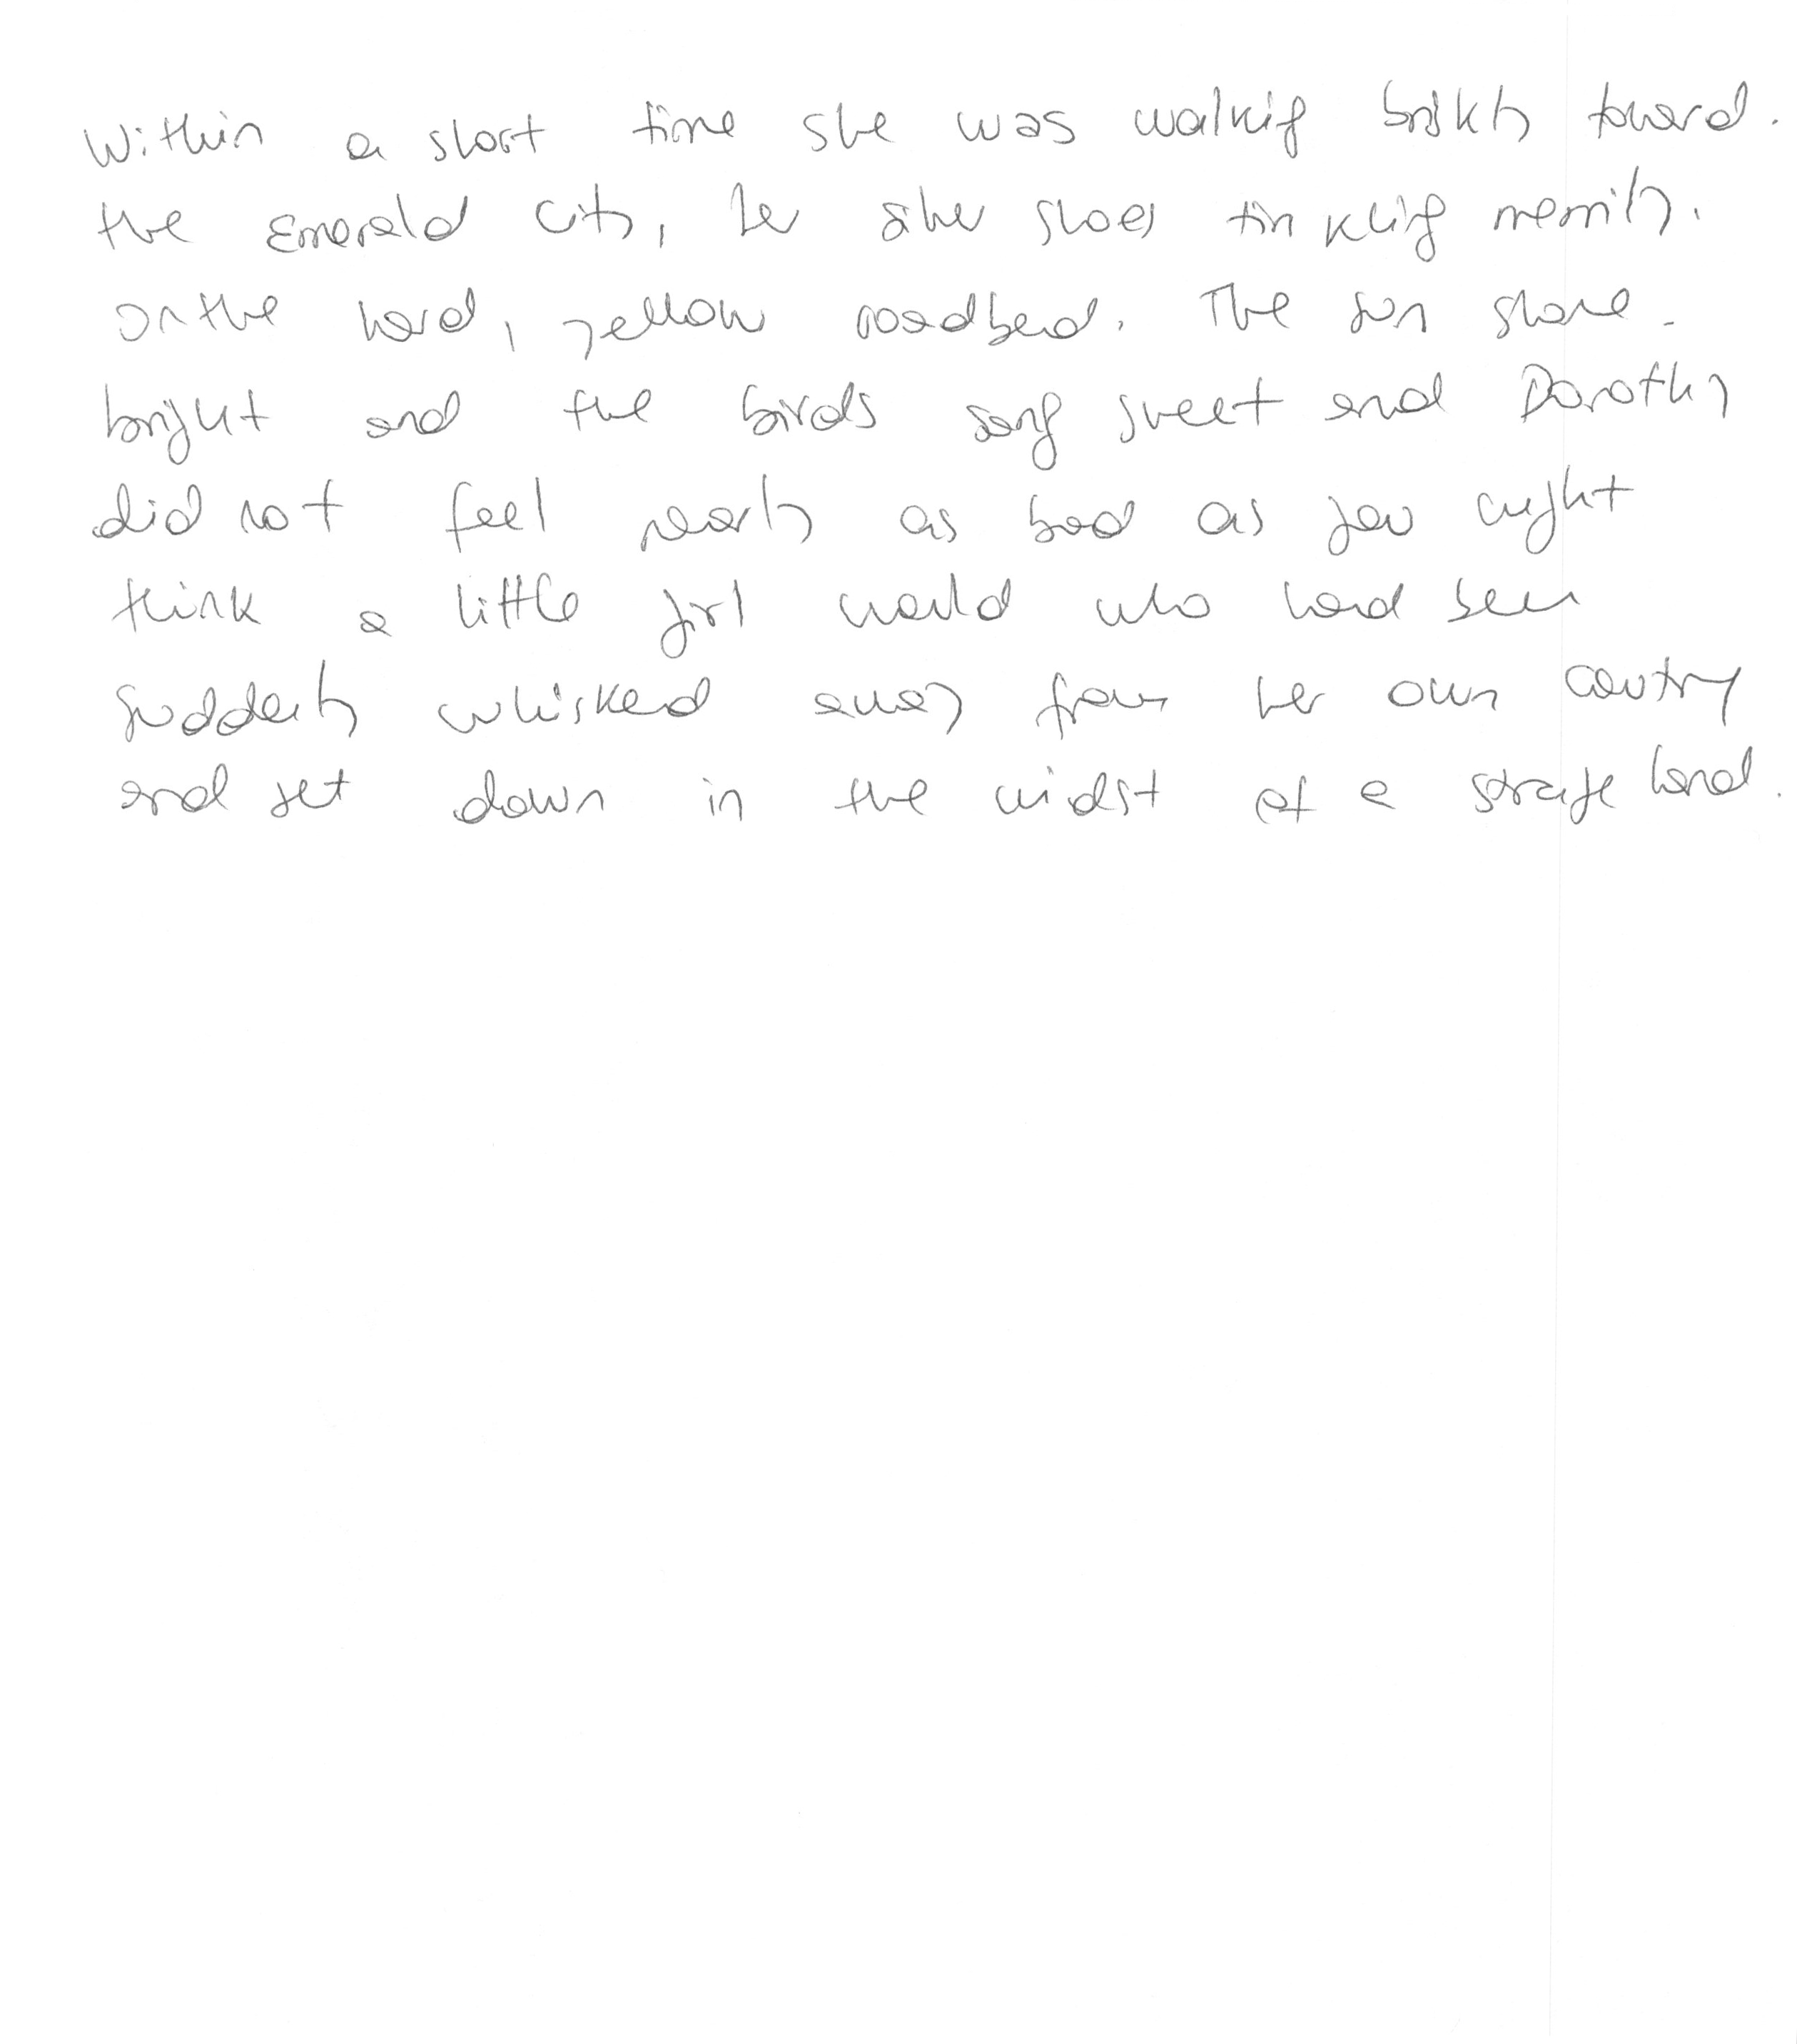 Within a short time she was walking briskly toward.
the Emerald City, her silver shoes tinkling merrily.
on the hard, yellow roadbed. The sun shone
bright and the birds sang sweet and Dorothy
did not feel nearly as bad as you might
think a little girl would who had been
suddenly whisked away from her own country
and set down in the midst of a strange land.